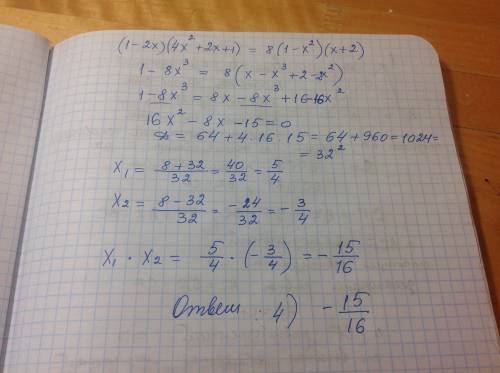 (1-2x)(4x²+2x+1) = 8(1-x²)(x+2)
1 - 8x³ = 8(x - x³ + 2 - 2x²)
1 - 8x³ = 8x - 8x³ + 16 - 16x²
16x² - 8x - 15 = 0
D = 64 + 4 · 16 · 15 = 64 + 960 = 1024 =
= 32²
x₁ = (8+32)/32 = 40/32 = 5/4
x₂ = (8-32)/32 = -24/32 = -3/4
x₁ · x₂ = 5/4 · (-3/4) = -15/16
Ответ : 4) -15/16